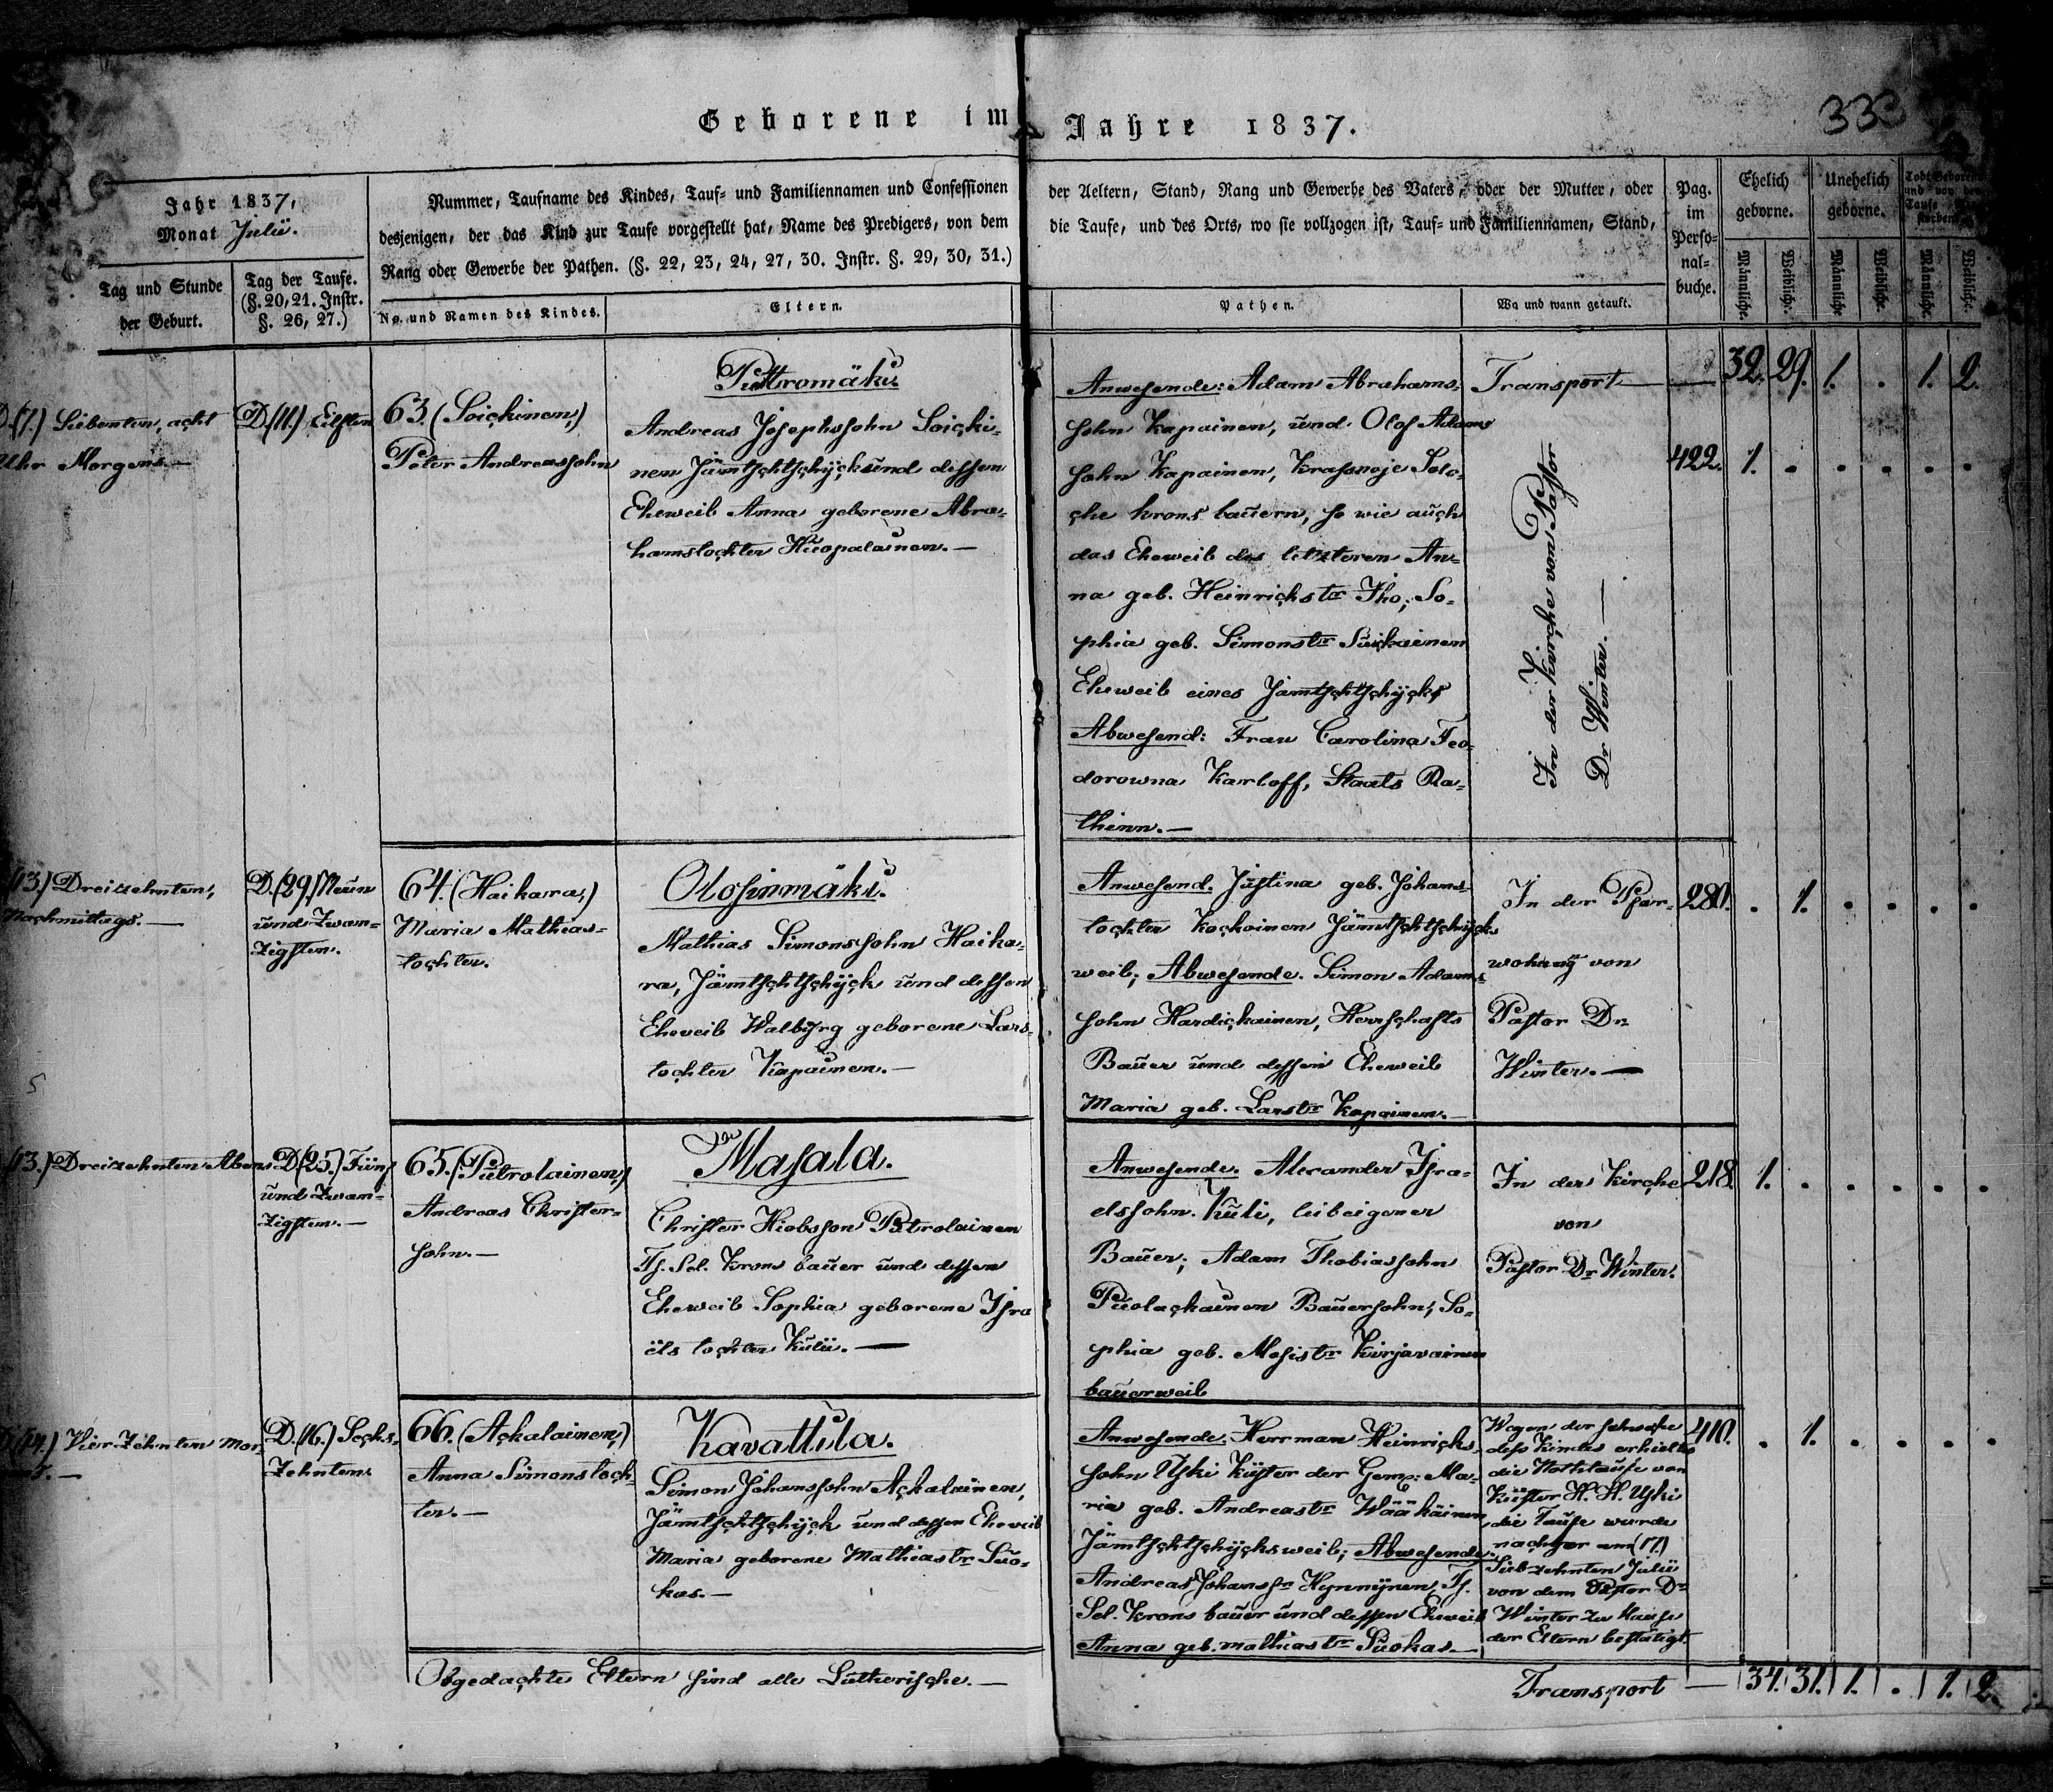 Geborene im Jahre 1837.
333
Jahr 1837,
Monat Julii.
Tag und Stunde
der Geburt.
Tag der Taufe.
(§. 20, 21. Instr.
§. 26, 27.)
Nummer, Taufname des Kindes, Tauf- und Familiennamen und Confessionen
desjenigen, der das Kind zur Taufe vorgestellt hat, Name des Predigers, von dem
Rang oder Gewerbe der Pathen. (§. 22, 23, 24, 27, 30. Instr. §. 29, 30, 31.)
No. und Namen des Kindes.
Eltern.
der Aeltern, Stand, Rang und Gewerbe des Vaters, oder der Mutter, oder
die Taufe, und des Orts, wo sie vollzogen ist, Tauf- und Familiennamen, Stand,
Pathen.
Wo und wann getauft.
Pag.
im
Perso-
nal-
buche.
Ehelich
geborne.
Unehelich
geborne.
Todt Geborene
und vor der
Taufe
Männliche.
Weibliche.
Männliche
Weibliche.
Männliche.
Weibliche.
Transport — 32. 29. 1. . 1. 2.
D. (7.) Siebenten, acht
Uhr Morgens. —
D. (11.) Eilften
63. (Soickinen,)
Peter Andreassohn
Puttromäki
Andreas Josephssohn Soicki-
nen Jämtschtschÿck und dessen
Eheweib Anna geborene Abra-
hamstochter Huopalainen. —
Anwesende: Adam Abrahams-
sohn Kapainen, und Olof Adams
sohn Kapainen, Krassnoje Selo-
che Krons bauern, so wie auch
das Eheweib des letzteren An-
na geb. Heinrichstr Iho; So-
phia geb. Simonstr Suikainen
Eheweib eines Jamtschtschÿcks
Abwesend: Frau Carolina Feo-
dorowna Karloff, Staats Ra-
thinn. —
In der Kirche vom Pastor
Dr Winter. —
422. 1. . . . . .
(13.) Dreizehnten,
Nachmittags. —
D. (29.) Neun
und Zwan-
zigsten.
64. (Haikara,)
Maria Mathias-
tochter.
Olosinmäki.
Mathias Simonssohn Haika-
ra, Jämtschtschÿck und dessen
Eheweib Walbÿrg geborene Lars-
tochter Kapainen. —
Anwesend. Justina geb. Johans-
tochter Kockoinen Jämtschtschÿcks
weib; Abwesende. Simon Adams-
sohn Hardickainen, Herrschafts
Bauer und dessen Eheweib
Maria geb. Larstr Kapainen. —
In der Pfar-
wohnung von
Pastor Dr
Winter. —
280. . 1. . . . .
(13.) Dreizehnten Abens
D. (25.) Fünf
und Zwan-
zigsten. —
65. (Putrolainen,)
Andreas Christer-
sohn. —
Masala.
Christer Hiobsson Putrolainen
Zs. Sel. Krons bauer und dessen
Eheweib Sophia geborene Isra
äls tochter Kulii. —
Anwesende. Alexander Isra-
elssohn. Kuli, leibeigener
Bauer; Adam Thobiassohn
Puolackainen Bauersohn; So-
phia geb. Mosistr Kirjavainen
bauerweib
In der Kirche
von
Pastor Dr Winter.
218. 1. . . . . .
(14.) Vier-Zehnten Mor-
D. (16.) Sechs-
Zehnten
66. (Ackalainen,)
Anna Simonstoch-
ter. —
Kavattula.
Simon Johanssohn Ackalainen,
Jämtschtschÿck und dessen Eheweib
Maria geborene Mathiastr Suo-
kas. —
Anwesende. Herrman Heinrichs-
sohn Uski Küster der Gem: Ma-
ria geb. Andreastr Wääkäinen
Jämtschtschÿcksweib; Abwesende.
Andreas Johanssn Hynnÿnen Zs.
Sel. Krons bauer und dessen Eheweib
Anna geb. Mathiastr Suokas —
Wegen der Schwäche
dess Kindes erhielte
die Nothtaufe von
Küster H. H. Uski
die Taufe wurde
nachher am (17.)
Siebzehnten Julii
von dem Pastor Dr
Winter zu Hause
der Eltern bestätigt.
410. . 1. . . . .
Obgedachte Eltern sind alle Lutherische. —
Transport — 34. 31. 1. . 1. 2.